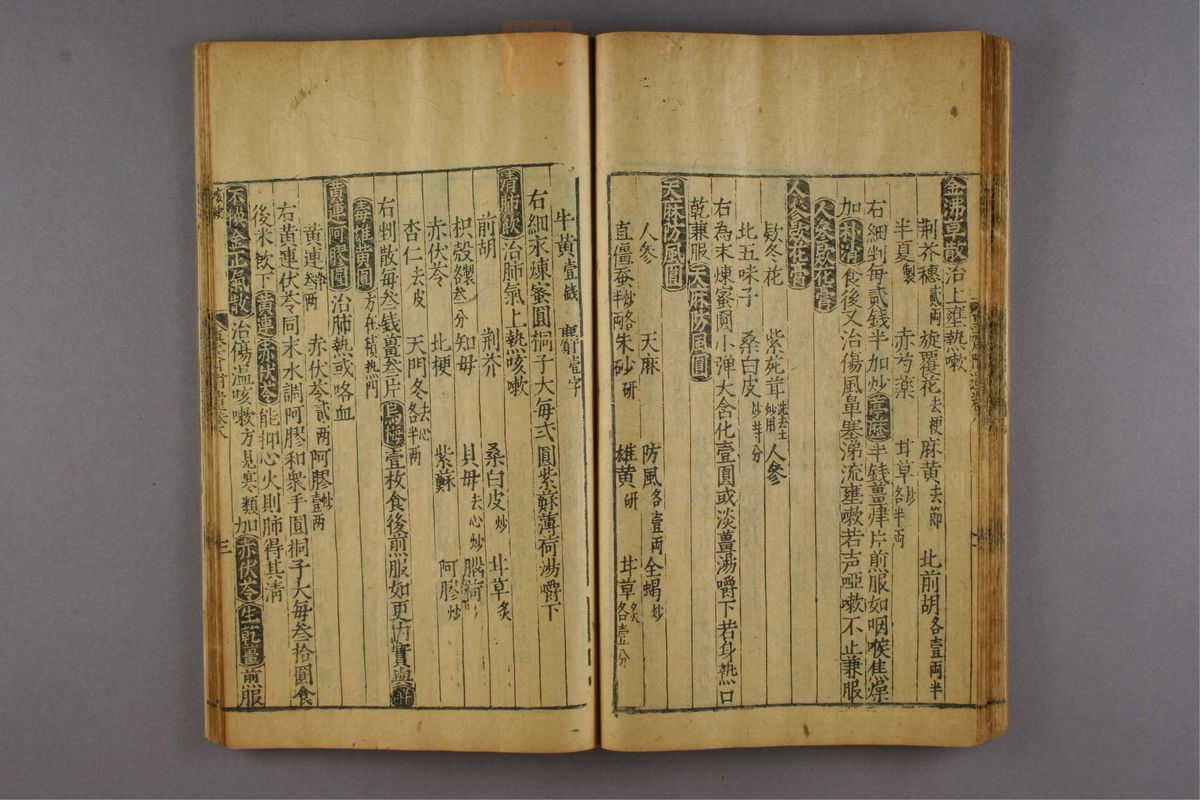 金沸草散 治上壅熱嗽
荆芥穗 貳兩 旋覆花 去梗 麻黄 去節 北前胡 各壹兩半
半夏 製 赤芍藥 甘草 炒各半兩
右細剉每貳錢半加炒葶藶半錢薑肆片煎服如咽喉焦燥
加朴消食後又治傷風鼻塞涕流壅嗽若声啞嗽不止兼服
人參欵花膏
人參欵花膏
欵冬花 紫菀茸 洗去土炒用 人參
北五味子 桑白皮 炒等分
右為末煉蜜圓小彈大含化壹圓或淡薑湯嚼下若身熱口
乾兼服天麻防風圓
天麻防風圓
人參 天麻 防風 各壹兩 全蝎 炒
直僵蚕 炒各半兩 朱砂 研 雄黄 研 甘草 炙各壹分
牛黄 壹錢 麝壹字
右細末煉蜜圓桐子大每弍圓紫蘇薄荷湯嚼下
清肺飲 治肺氣上熱咳嗽
前胡 荆芥 桑白皮 炒 甘草 炙
枳殼 製 各叁分 知母 貝母 去心炒 薄荷
赤伏苓 北梗 紫蘇 阿膠 炒
杏仁 去皮 天門冬 去心各半兩
右剉散每叁錢薑叁片烏梅壹枚食後煎服如更內實與解
毒雄黄圓 方在積熱門
黄連阿膠圓 治肺熱或咯血
黄連 叁兩 赤伏苓 貳兩 阿膠 炒壹兩
右黄連伏苓同末水調阿膠和衆手圓桐子大每叁拾圓食
後米飲下黄連赤伏苓能抑心火則肺得其清
不換金正氣散 治傷温咳嗽方見寒類加赤伏苓生乾薑煎服
咳嗽
三